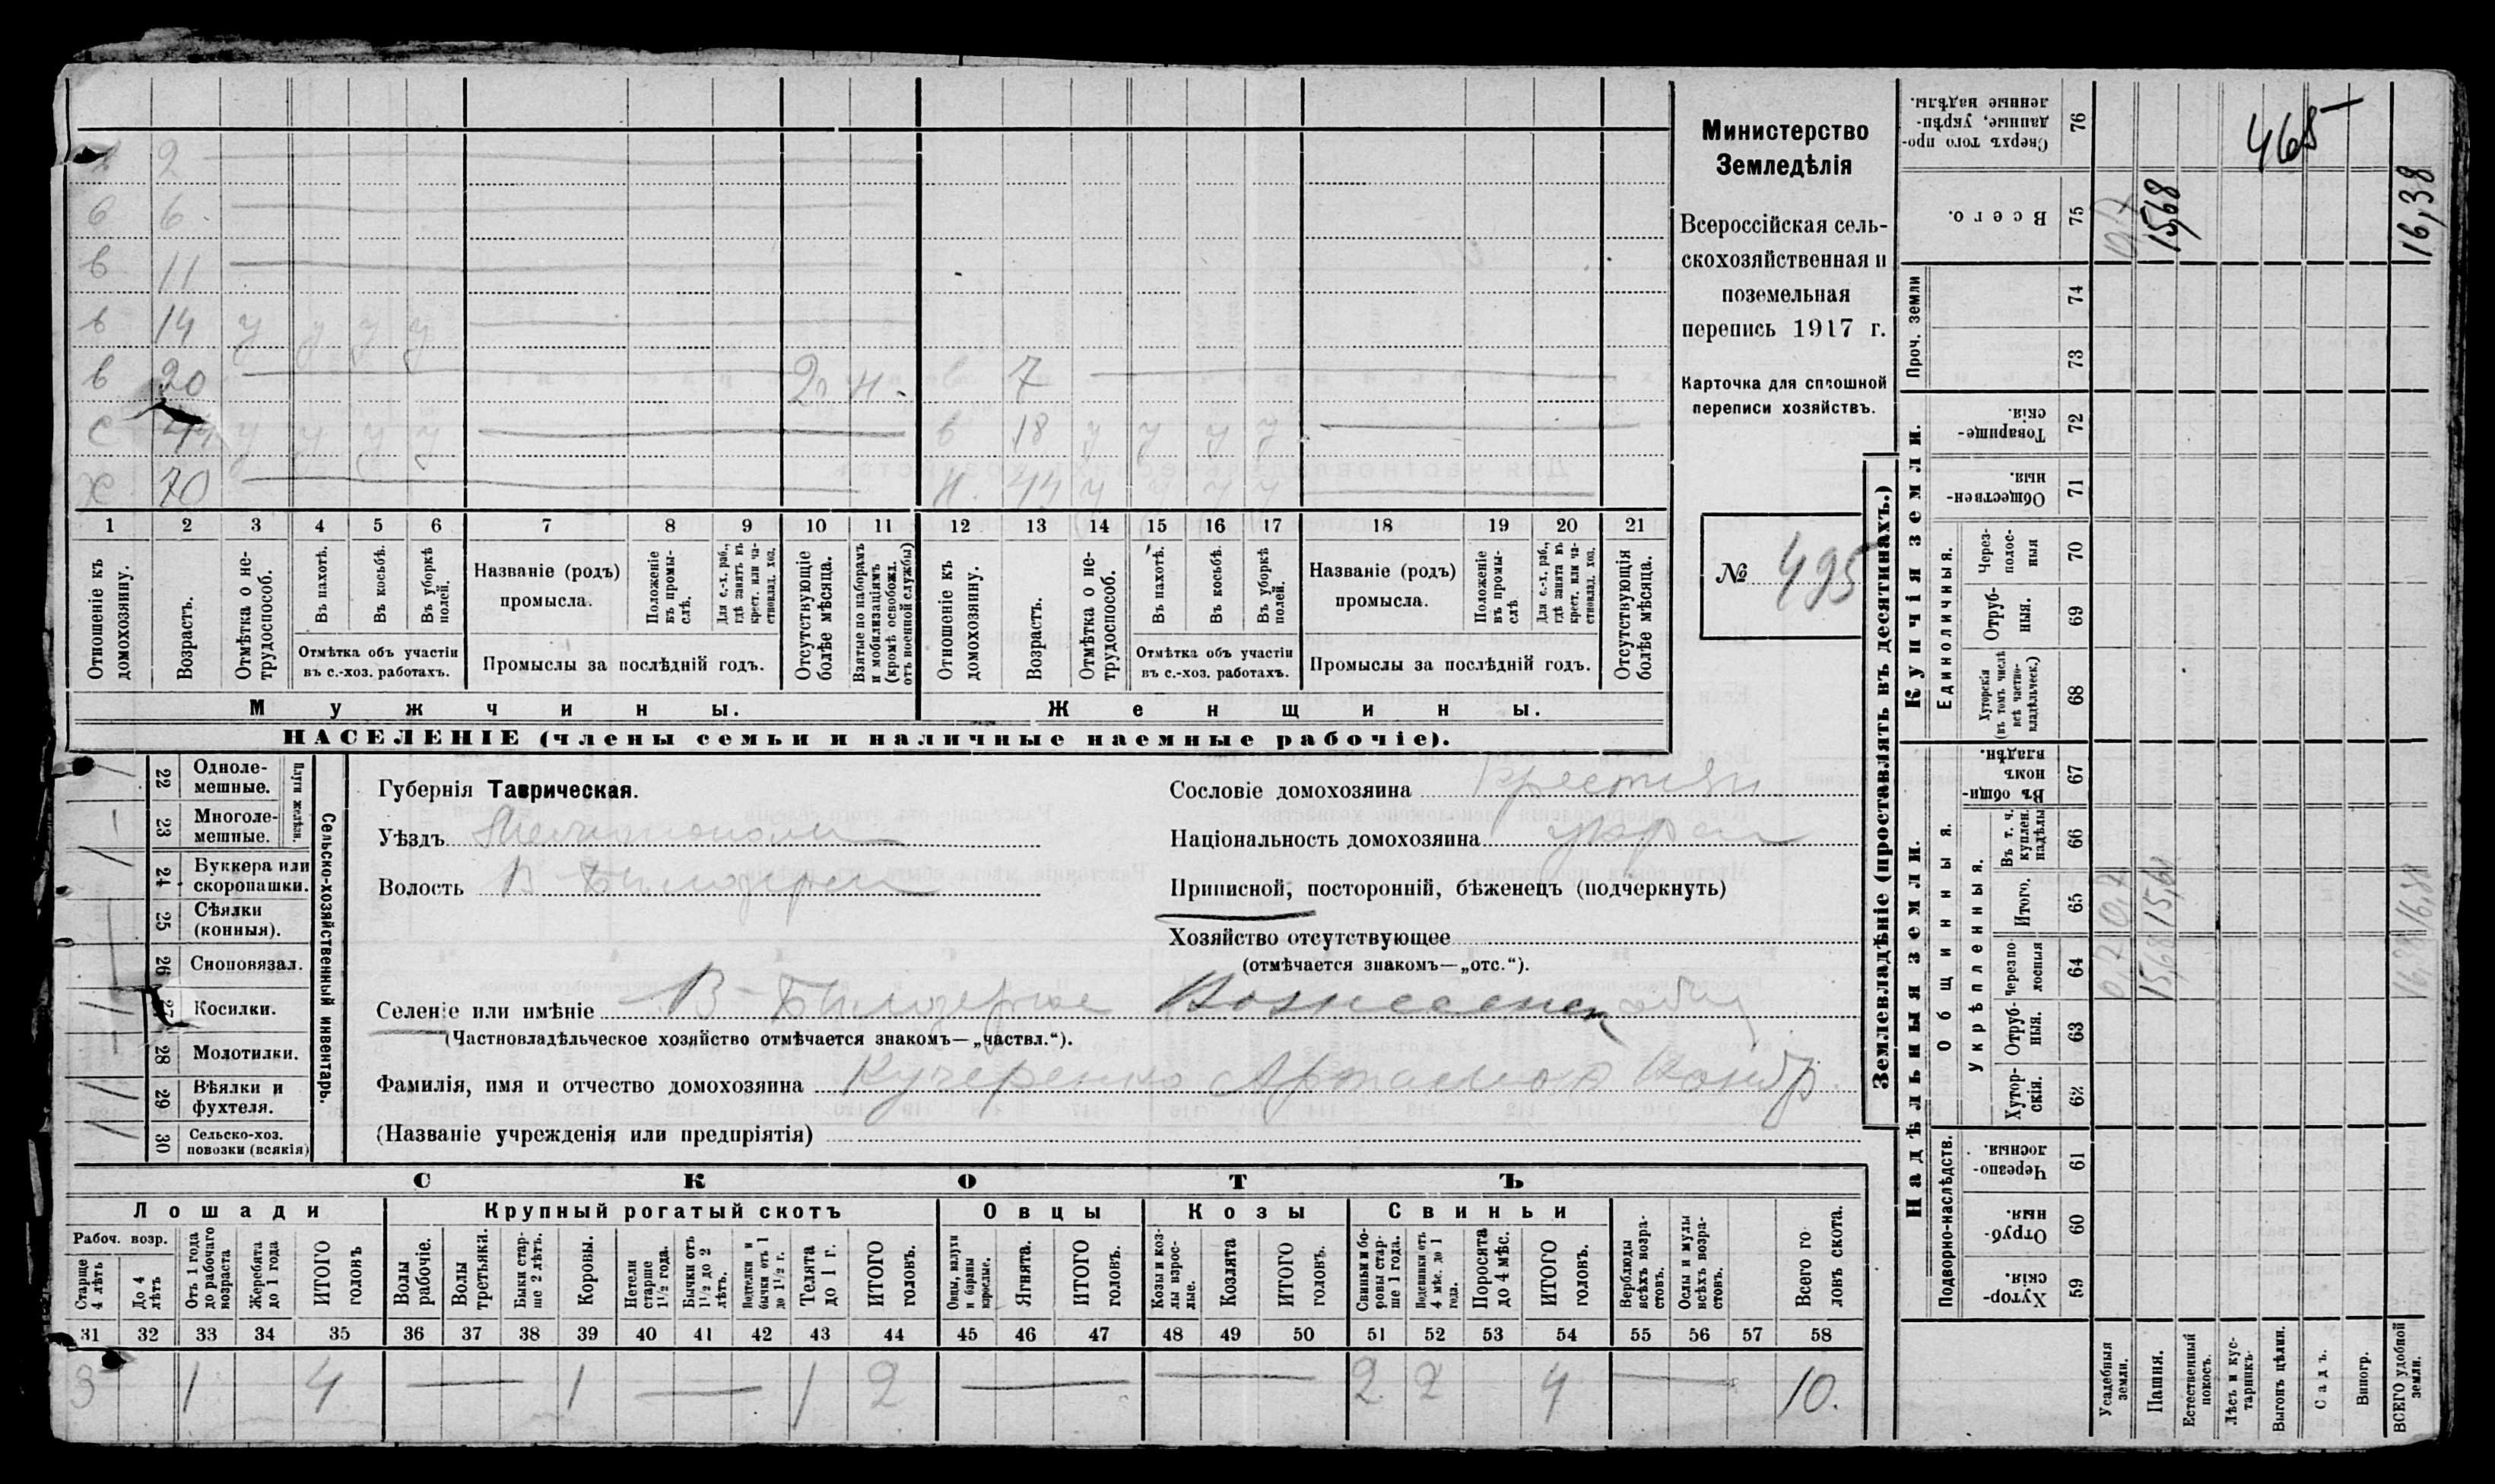 в 2
в 6
в 11
в 14 у у у у
в 20 2 н. в 7
с 44 у у у у в 18 у у у у
х 70 н. 44 у у у у
1 2 3 4 5 6 7 8 9 10 11 12 13 14 15 16 17 18 19 20 21
Отношеніе къ домохозяину.
Возрастъ.
Отмѣтка о не-
трудоспособ.
Въ пахотѣ.
Въ косьбѣ.
Въ уборкѣ полей.
Отмѣтка объ участіи
въ с.-хоз. работахъ.
Названіе (родъ)
промысла.
Положеніе въ промы-
слѣ.
Для с.-х. раб., гдѣ занятъ въ крест. или ча-
стновлад. хоз.
Промыслы за послѣдній годъ.
Отсутствующіе болѣе мѣсяца.
Взятые по наборамъ и мобилизаціямъ (кромѣ освобожд. отъ военной службы)
Отношеніе къ домохозяину.
Возрастъ.
Отмѣтка о не-
трудоспособ.
Въ пахотѣ.
Въ косьбѣ.
Въ уборкѣ полей.
Отмѣтка объ участіи
въ с.-хоз. работахъ.
Названіе (родъ)
промысла.
Положеніе въ промы-
слѣ
Для с.-х. раб., гдѣ занята въ крест. или ча-
стновлад. хоз.
Промыслы за послѣдній годъ.
Отсутствующія болѣе мѣсяца.
Мужчины. Женщины.
НАСЕЛЕНІЕ (члены семьи и наличные наемные рабочіе).
Министерство
Земледѣлія
Всероссійская сель-
скохозяйственная и
поземельная
перепись 1917 г.
Карточка для сплошной
переписи хозяйствъ.
№ 495
22 Одноле-
мешные.
23 Многоле-
мешные.
Плуги желѣзн.
24 Буккера или
скоропашки.
25 Сѣялки
(конныя).
26 Сноповязал.
27 Косилки.
28 Молотилки.
29 Вѣялки и
фухтеля.
30 Сельско-хоз.
повозки (всякія)
Сельско-хозяйственный инвентарь.
Губернія Таврическая.
Уѣздъ
Волость
Сословіе домохозяина Крестьян
Національность домохозяина укра
Приписной, посторонній, бѣженецъ (подчеркнуть)
Хозяйство отсутствующее
(отмѣчается знакомъ—„отс.“).
Селеніе или имѣніе В-
(Частновладѣльческое хозяйство отмѣчается знакомъ—„частвл.“).
Фамилія, имя и отчество домохозяина Кучеренко Артамон Кондр.
(Названіе учрежденія или предпріятія)
СКОТЪ
Лошади Крупный рогатый скотъ Овцы Козы Свиньи
Рабоч. возр.
Старше 4 лѣтъ
До 4 лѣтъ
Отъ 1 года до рабочаго возраста
Жеребята до 1 года
ИТОГО головъ
Волы рабочіе.
Волы третьяки.
Быки стар-
ше 2 лѣтъ.
Коровы.
Нетели старше 1½ года.
Бычки отъ 1½ до 2 лѣтъ.
бычки отъ 1 до 1½ г.
Телята до 1 г.
ИТОГО головъ.
Овцы, валухи и бараны взрослые.
Ягнята.
ИТОГО головъ.
Козы и коз-
лы взрос-
лые.
Козлята
ИТОГО головъ.
Свиньи и бо-
ровы стар-
ше 1 года.
Подсвинки отъ 4 мѣс. до 1 года.
Поросята до 4 мѣс.
ИТОГО головъ.
Верблюды всѣхъ возра-
стовъ.
Ослы и мулы всѣхъ возра-
стовъ.
Всего го
ловъ скота.
31 32 33 34 35 36 37 38 39 40 41 42 43 44 45 46 47 48 49 50 51 52 53 54 55 56 57 58
3 1 4 1 1 2 2 2 4 10.
Землевладѣніе (проставлять въ десятинахъ.)
Надѣльныя земли. Купчія земли.
Подворно-наслѣдств.
Общинныя.
Укрѣпленныя.
Единоличныя.
Проч. земли
59 Хутор-
скія.
60 Отруб-
ныя.
61 Черезпо-
лосныя.
62 Хутор-
скія.
63 Отруб-
ныя.
64 Черезпо-
лосныя
65 Итого.
66 Въ т. ч. куплен. надѣлы
67 Въ общи-
номъ владѣн.
68 Хуторскія (въ томъ числѣ всѣ частно-
владѣльческ.)
69 Отруб-
ныя.
70 Через-
полос-
ныя
71 Обществен-
ныя.
72 Товарище-
скія.
73
74
75 Всего.
76 Сверхъ того про-
данные, укрѣп-
ленные надѣлы.
Усадебныя земли. 0,7 0,7 0,7
Пашня. 15,68 15,68 15,68
Естественный покосъ.
Лѣсъ и кус-
тарникъ
Выгонъ цѣлин.
Садъ.
Виногр.
ВСЕГО удобной земли. 16,38 16,38 16,38
465